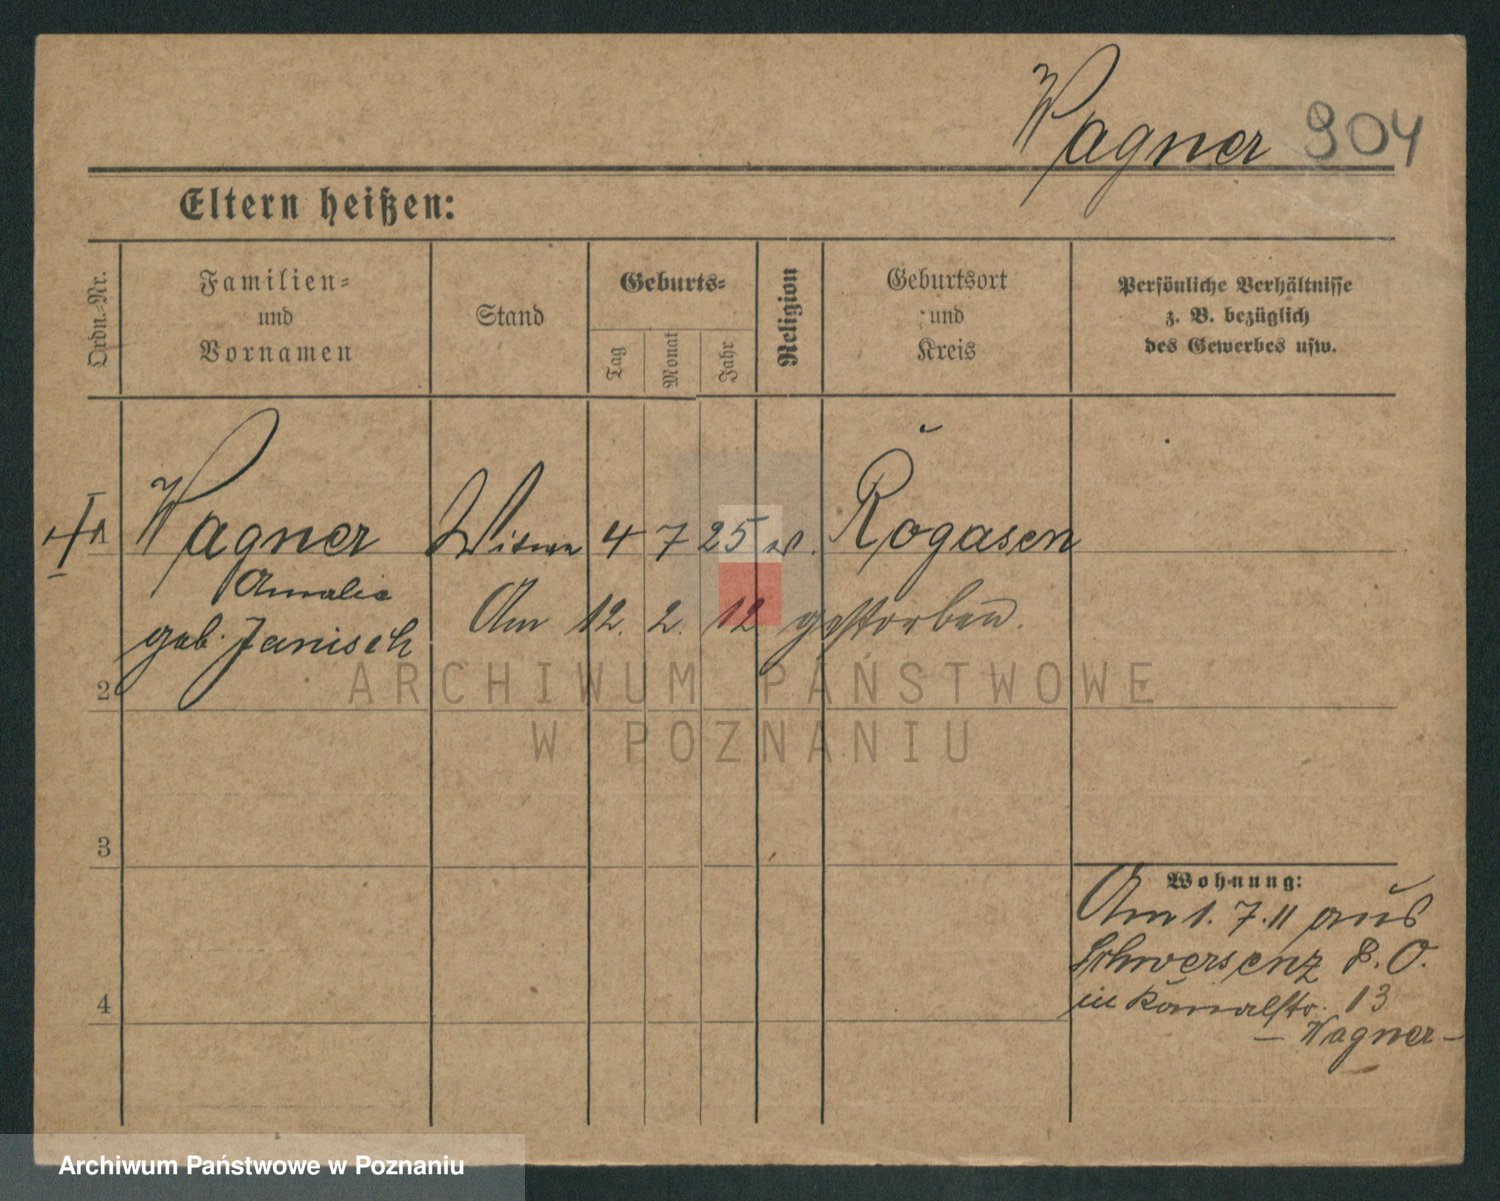 Wagner 904
Eltern heißen:
Ordn.-Nr.
Familien-
und
Vornamen
Stand
Geburts-
Tag
Monat
Jahr
Religion
Geburtsort
und
Kreis
Persönliche Verhältnisse
z. B. bezüglich
des Gewerbes usw.
1 Wagner Witwe 4 7 25 Rogasen
Amalie
geb. Janisch
Am 12. 2. 12 gestorben.
2
3
4
Wohnung:
Am 1. 7. 11 aus
Schwersenz P. O.
in Kanalstr. 13
– Wagner –
ARCHIWUM PAŃSTWOWE
W POZNANIU
Archiwum Państwowe w Poznaniu